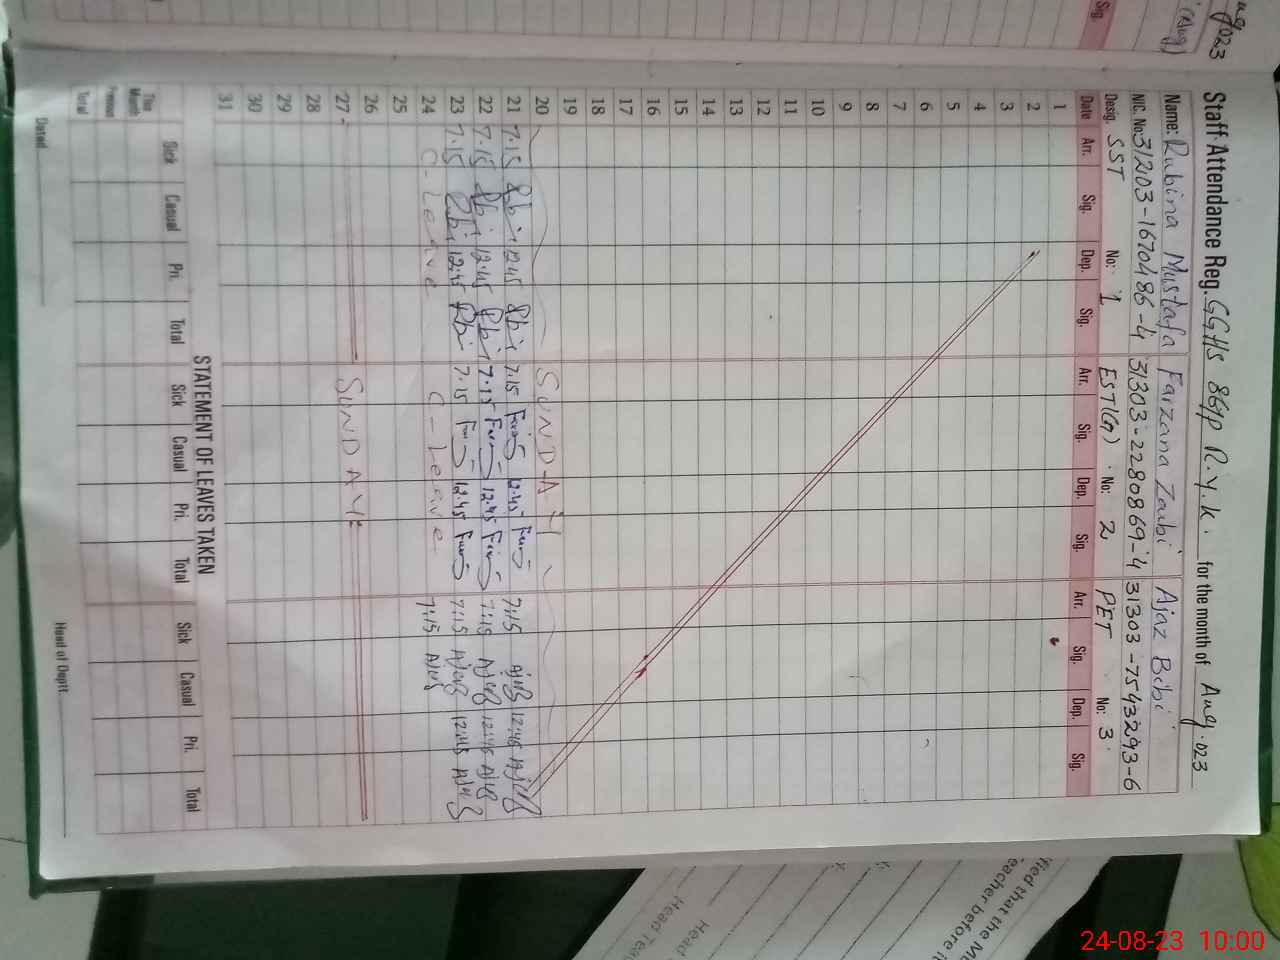 Aug 023
Sig.
Staff Attendance Reg. GGHS 86/P R.Y.K. for the month of Aug. 023
Name: Rubina Mustafa Farzana Zaibi Ajaz Bibi
NIC. No 31203-1670486-4 31303-2280869-4 31303-7543293-6
Desig. SST No: 1 EST(G) No: 2 PET No: 3
Date Arr. Sig. Dep. Sig. Arr. Sig. Dep. Sig. Arr. Sig. Dep. Sig.
1
2
3
4
5
6
7
8
9
10
11
12
13
14
15
16
17
18
19
20 SUNDAY
21 7.15 12.45 7.15 12.45 7:15 12:45
22 7.15 12.45 7.15 12.45 7:15 12:45
23 7.15 12.45 7.15 12.45 7:15 12:45
24 C-Leave C-Leave 7:15
25
26
27 SUNDAY
28
29
30
31
STATEMENT OF LEAVES TAKEN
Sick Casual Pri. Total Sick Casual Pri. Total Sick Casual Pri. Total
This Month
Previous
Total
Dated Head of Deptt.
ified that the M
eacher before
Head
Head Tea
24-08-23 10:00